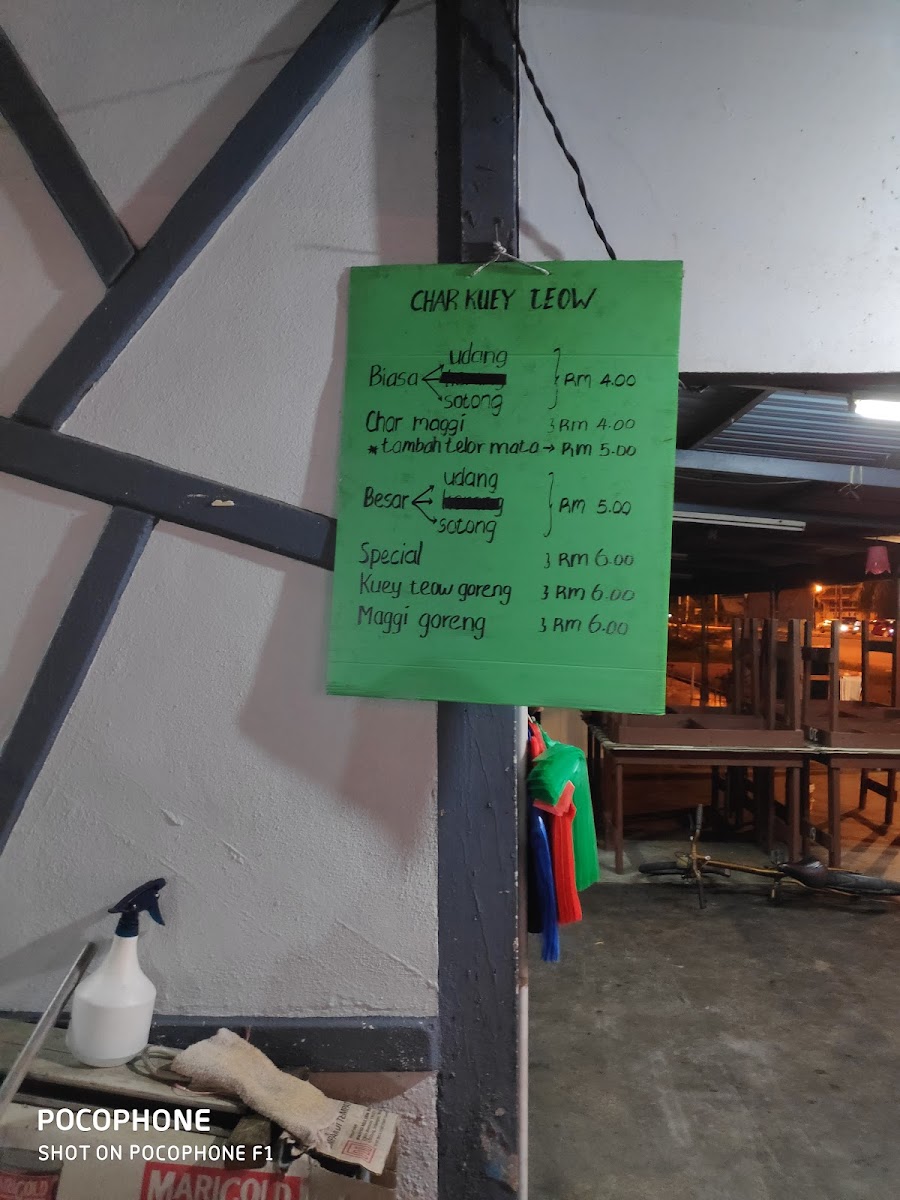 CHAR KUEY TEOW
udang
Biasa } Rm 4.00
sotong
Char maggi } Rm 4.00
* tambah telor mata → Rm 5.00
udang
Besar } Rm 5.00
sotong
Special } Rm 6.00
Kuey teow goreng } Rm 6.00
Maggi goreng } Rm 6.00
POCOPHONE
SHOT ON POCOPHONE F1
MARIGOLD